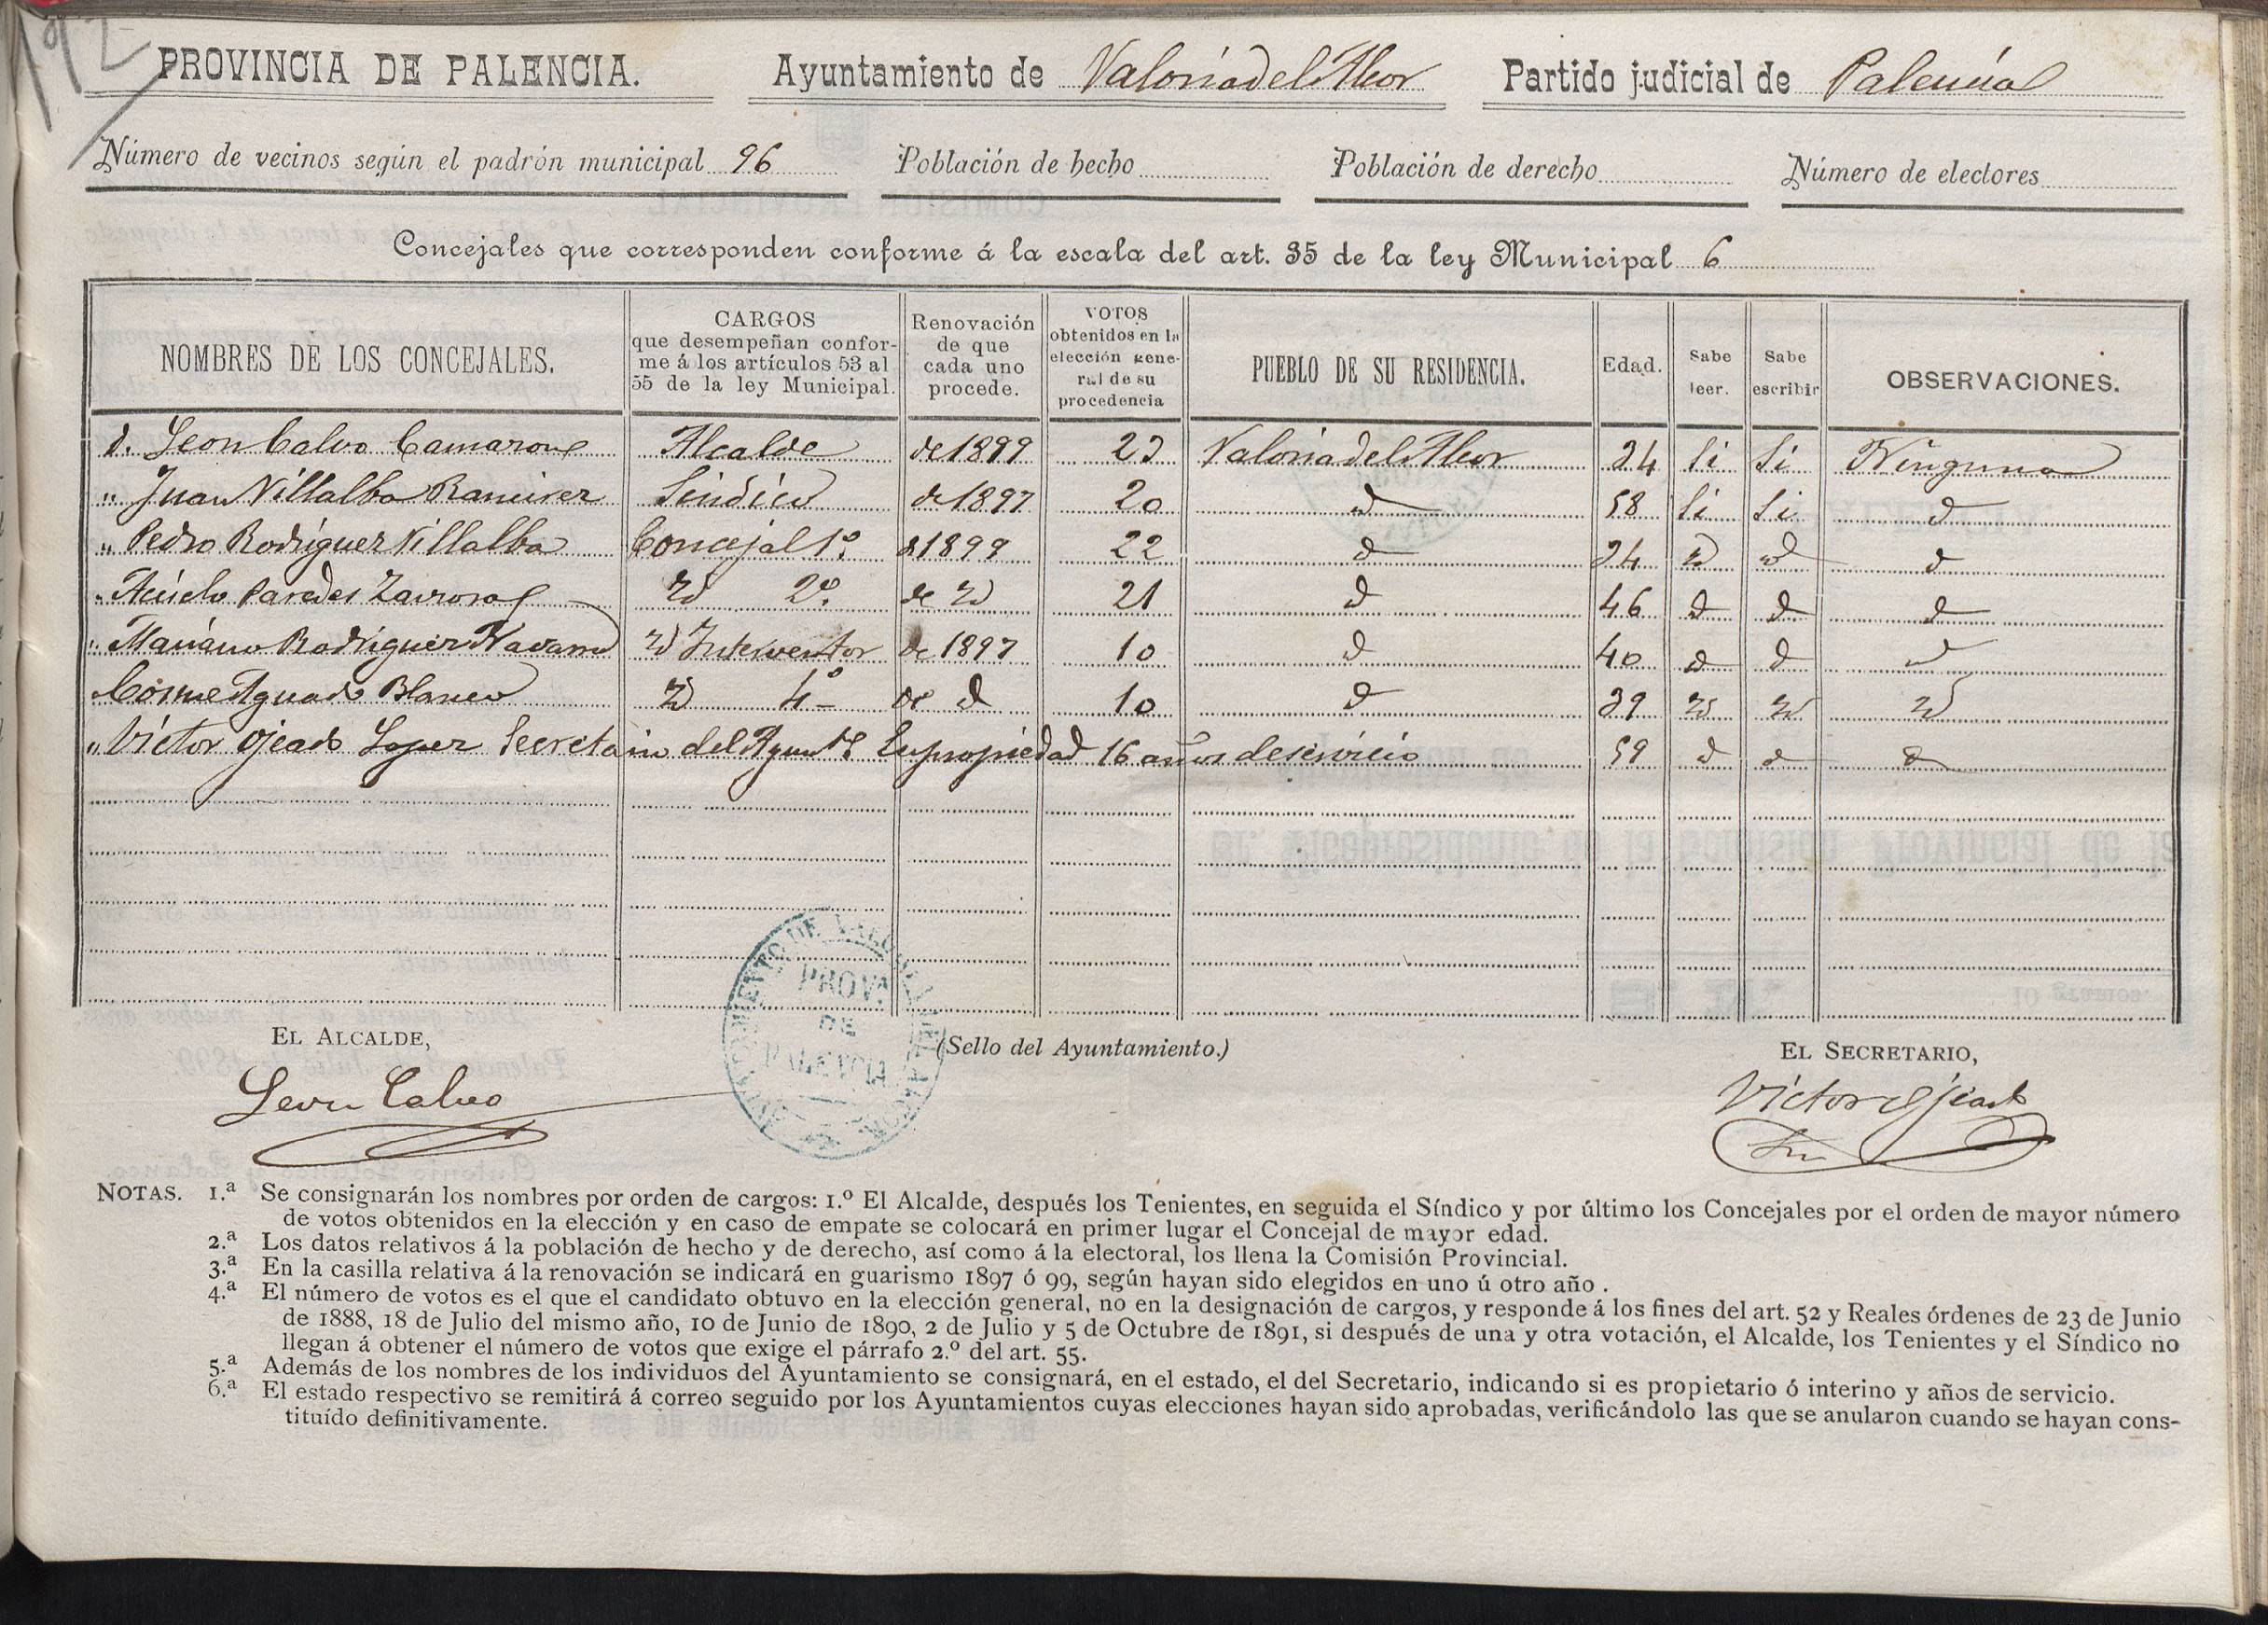 192
PROVINCIA DE PALENCIA. Ayuntamiento de Valoria del Alcor Partido judicial de Palencia
Número de vecinos según el padrón municipal 96 Población de hecho Población de derecho Número de electores
Concejales que corresponden conforme á la escala del art. 35 de la ley Municipal 6
NOMBRES DE LOS CONCEJALES. CARGOS que desempeñan conforme á los artículos 53 al 55 de la ley Municipal. Renovación de que cada uno procede. VOTOS obtenidos en la elección general de su procedencia PUEBLO DE SU RESIDENCIA. Edad. Sabe leer. Sabe escribir OBSERVACIONES.
D. Leon Calvo Camazon Alcalde de 1899 23 Valoria del Alcor 34 Si Si Ninguna
" Juan Villalba Ramirez Sindico de 1897 20 id 58 Si Si id
" Pedro Rodriguez Villalba Concejal 1º. de 1899 22 id 34 id id id
" Acisclo Paredes id 2º. de id 21 id 46 id id id
" Mariano Rodriguez Navarro id Interventor de 1897 10 id 40 id id id
Cosme Aguado Blanco id 4º de id 10 id 39 id id id
" Victor Ojeado Lopez Secretario del Ayunto. En propiedad 16 años de servicio 59 id id id
AYUNTAMIENTO DE VALORIA DEL ALCOR
PROVA.
DE
PALENCIA
EL ALCALDE, (Sello del Ayuntamiento.) EL SECRETARIO,
Leon Calvo Victor Ojeado
NOTAS. 1.ª Se consignarán los nombres por orden de cargos: 1.º El Alcalde, después los Tenientes, en seguida el Síndico y por último los Concejales por el orden de mayor número
de votos obtenidos en la elección y en caso de empate se colocará en primer lugar el Concejal de mayor edad.
2.ª Los datos relativos á la población de hecho y de derecho, así como á la electoral, los llena la Comisión Provincial.
3.ª En la casilla relativa á la renovación se indicará en guarismo 1897 ó 99, según hayan sido elegidos en uno ú otro año .
4.ª El número de votos es el que el candidato obtuvo en la elección general, no en la designación de cargos, y responde á los fines del art. 52 y Reales órdenes de 23 de Junio
de 1888, 18 de Julio del mismo año, 10 de Junio de 1890, 2 de Julio y 5 de Octubre de 1891, si después de una y otra votación, el Alcalde, los Tenientes y el Síndico no
llegan á obtener el número de votos que exige el párrafo 2.º del art. 55.
5.ª Además de los nombres de los individuos del Ayuntamiento se consignará, en el estado, el del Secretario, indicando si es propietario ó interino y años de servicio.
6.ª El estado respectivo se remitirá á correo seguido por los Ayuntamientos cuyas elecciones hayan sido aprobadas, verificándolo las que se anularon cuando se hayan cons-
tituído definitivamente.